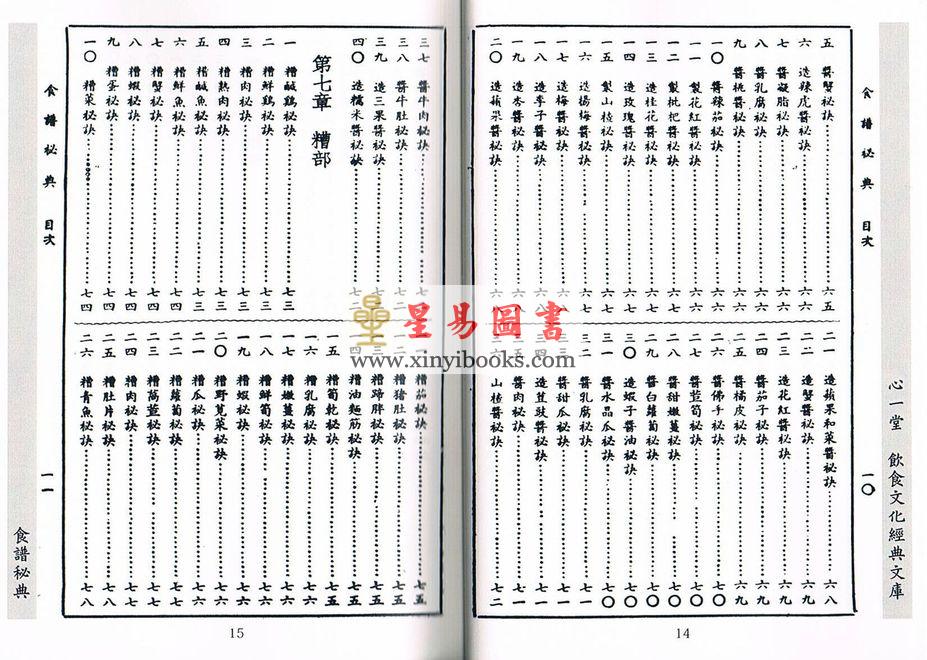 食譜秘典 目次
一〇
心一堂 飲食文化經典文庫
五 醬蟹秘訣 六五
六 造辣虎醬秘訣 六六
七 醬凝脂秘訣 六六
八 醬乳腐秘訣 六六
九 醬桃醬秘訣 六六
一〇 醬辣茄秘訣 六六
一一 製花紅醬秘訣
一二 製枇把醬秘訣 六七
一三 造桂花醬秘訣 六七
一四 造玫瑰醬秘訣 六七
一五 製山楂秘訣 六七
一六 造楊梅醬秘訣
一七 造梅醬秘訣
一八 造李子醬秘訣
一九 造杏醬秘訣
二〇 造蘋果醬秘訣
二一 造蘋果和菜醬秘訣 六八
二二 造蟹醬秘訣 六九
二三 造花紅醬秘訣 六九
二四 醬茄子秘訣 六九
二五 醬橘皮秘訣 六九
二六 醬佛手秘訣 七〇
二七 醬萱筍秘訣 七〇
二八 醬甜嫩薑秘訣 七〇
二九 醬白蘿蔔秘訣 七〇
三〇 造蝦子醬油秘訣 七〇
三一 醬水晶瓜秘訣 七〇
醬乳腐秘訣 七一
醬甜瓜秘訣 七一
造荳豉醬秘訣 七一
醬肉秘訣 七一
山楂醬秘訣 七二
14
三七 醬牛肉秘訣
三八 醬牛肚秘訣
三九 造三果醬秘訣
四〇 造糯米醬秘訣
第七章 糟部
一 糟鹹鷄秘訣 七三
二 糟鮮鷄秘訣 七三
三 糟肉秘訣 七三
四 糟熟肉秘訣 七三
五 糟鹹魚秘訣 七三
六 糟鮮魚秘訣 七四
七 糟蟹秘訣 七四
八 糟蝦秘訣 七四
九 糟蛋秘訣 七四
一〇 糟菜秘訣 七四
糟茄秘訣 七五
糟豬肚秘訣 七五
糟蹄胖秘訣 七五
糟油麵筋秘訣 七五
一五 糟筍乾秘訣 七五
一六 糟乳腐秘訣 七六
一七 糟嫩薑秘訣 七六
一八 糟鮮筍秘訣 七六
一九 糟蝦秘訣 七六
二〇 糟野莧菜秘訣 七六
二一 糟瓜秘訣 七六
二二 糟蘿蔔秘訣 七七
二三 糟萵苣秘訣 七七
二四 糟肉秘訣 七七
二五 糟肚片秘訣 七八
二六 糟青魚秘訣 七八
食譜秘典 目次
一一
食譜秘典
15
星易圖書
www.xinyibooks.com